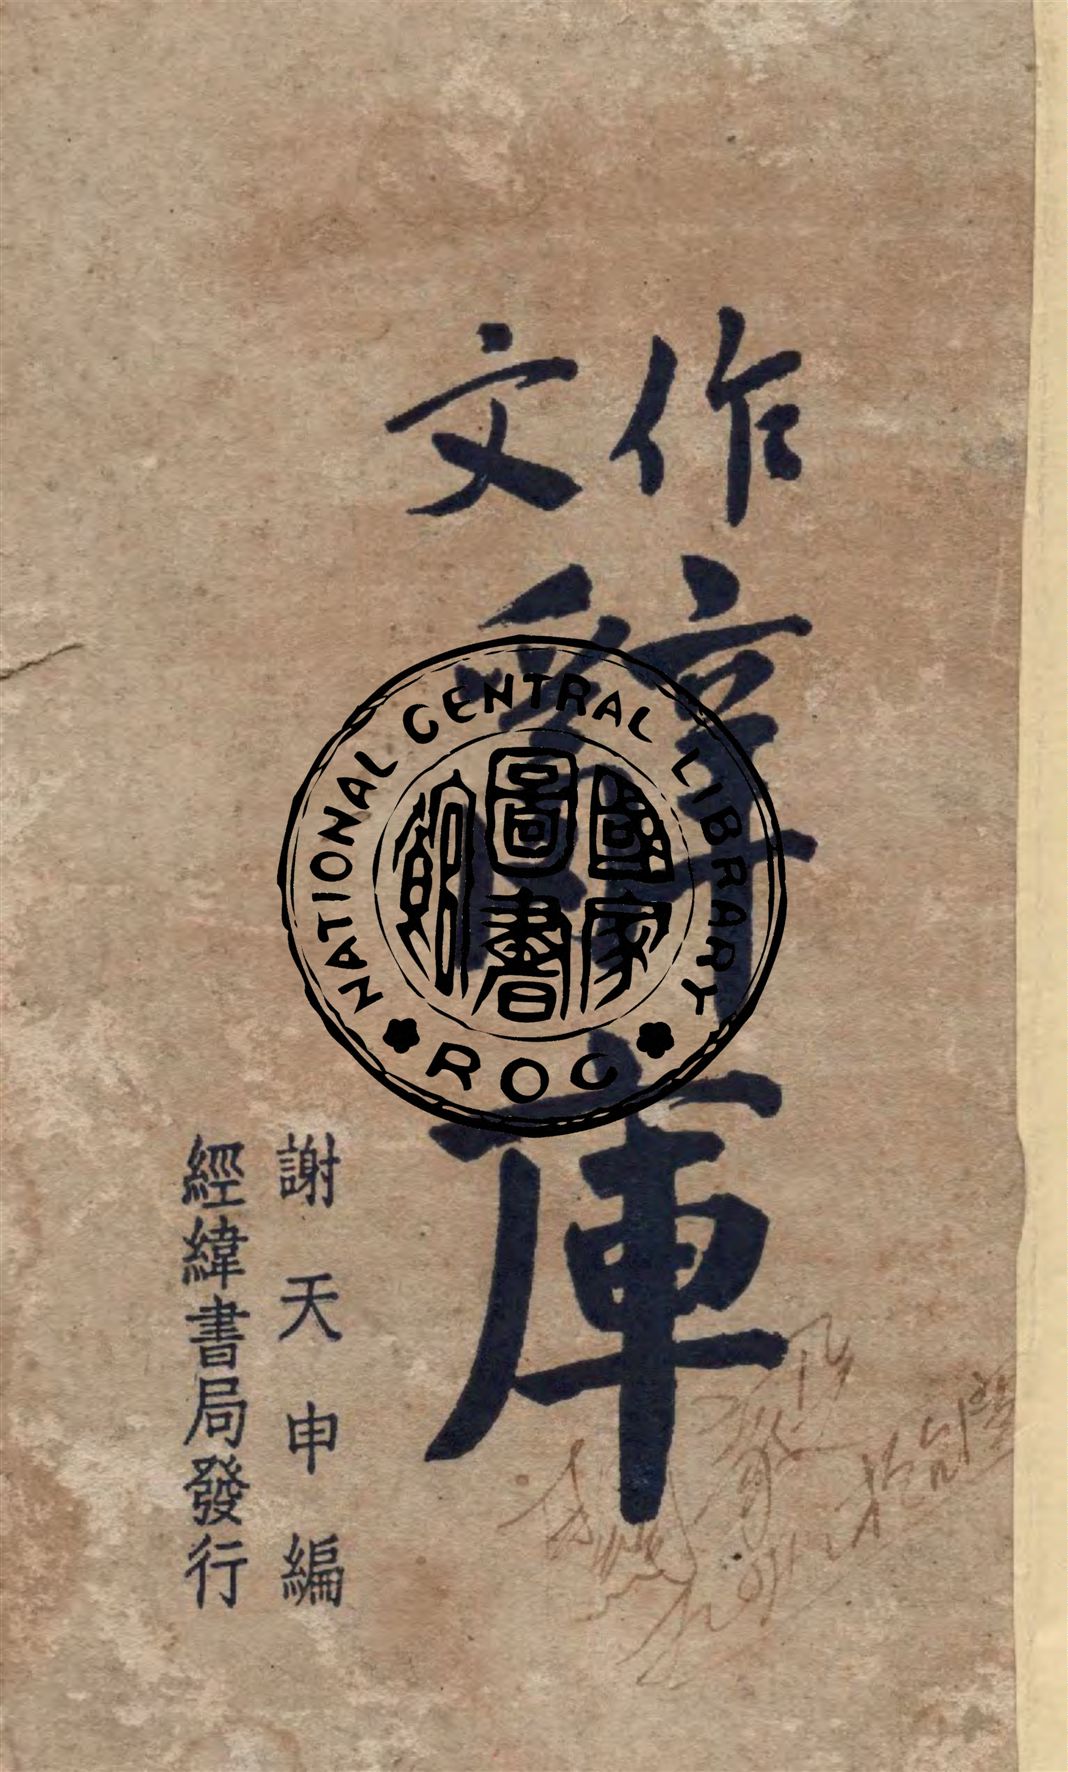 作文
辭
庫
謝天申編
經緯書局發行
NATIONAL CENTRAL LIBRARY
ROC
國家
圖書
館